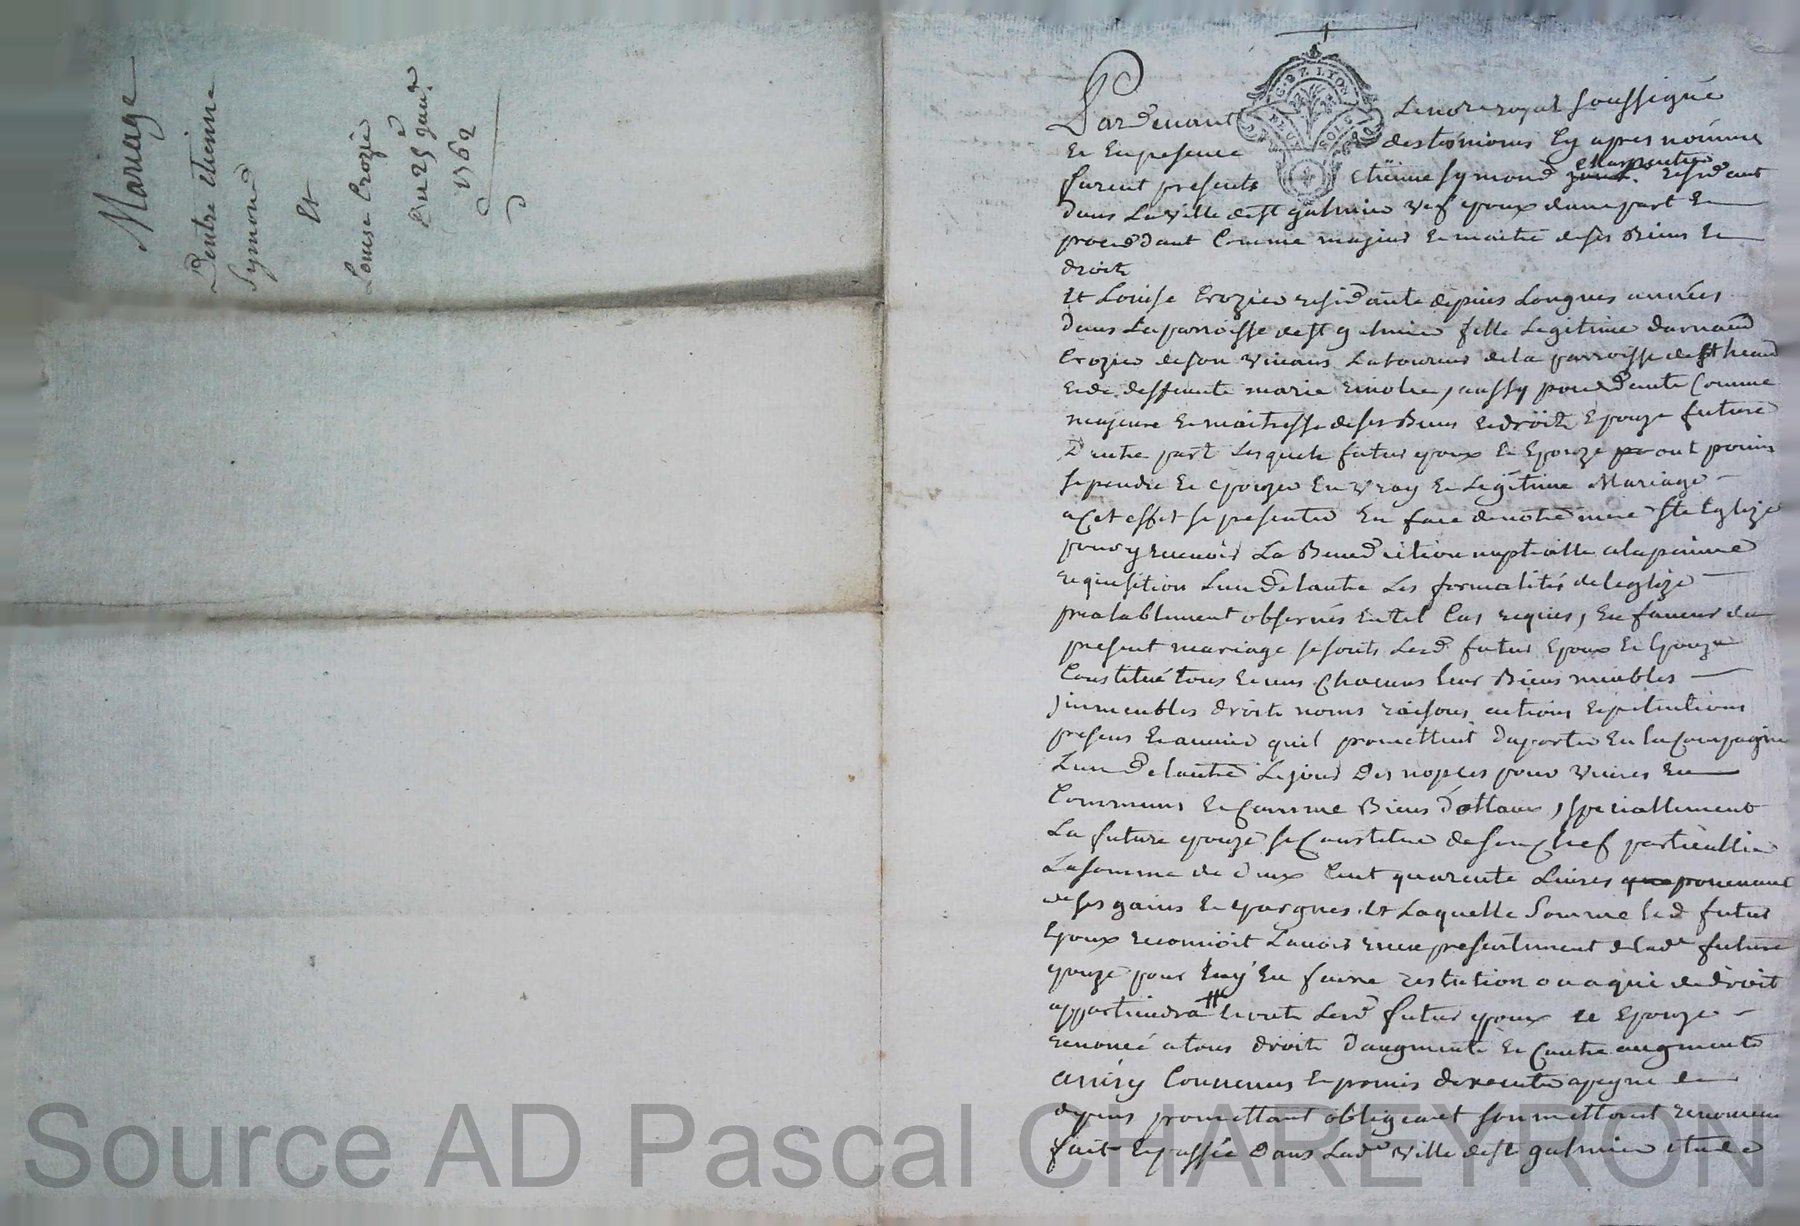 Mariage
Dentre etienne
Symond
Et
Louise Crozier
Du 25 janv.
1762
GEZ LYON
Pardevant Le notre royal soussigné
Et En presence des temoins Cy apres nommés
furent presents Etienne Symond charpentier residant
dans La ville de st galmier vef epoux dune part Et
procedant Comme majeur Et maitre de ses Biens Et
droits
Et Louise Crozier residante depuis Longues années
dans La parroisse de st galmier fille Legitime darnaud
Crozier de son vivant Laboureur de la parroisse de st heand
et de deffunte marie aussy procedante Comme
majeure Et maitresse de ses Biens et droits Epouze future
Dautre part Lesquels futur epoux Et Epouze ont promis
se prendre Et epouzer En vray Et Legitime Mariage
a Cet effet se presenter En face de notre mere ste Eglize
pour y recevoir La Benediction nuptialle a la premiere
requisition Lun De lautre Les formalités de leglize
prealablement observés En tel Cas requis, En faveur du
present mariage se sonts Lesd futur Epoux Et Epouze
Constitué tous et uns Chacuns leur Biens meubles
immeubles droits noms raisons actions Et petentions
presens Et avenir quil promettent daporter En la Compagnie
Lun De lautre Le jour Des nopces pour vivres En
Commun Et Comme Biens dottaux, speciallement
La future epouze se Constitue de son Chef particullier
La somme de deux Cent quarente Livres provenant
de ses gains Et epargnes. Et Laquelle Somme led futur
Epoux reconnoit Lavoir reçue presentement de lad future
epouze pour Luy En faire restution ou a qui de droit
appartiendra # Et ont Lesd futur epoux Et Epouze
renoncé a tous droits daugments Et Contre augments
Ainsy Convenus Et promis dexecuter a peyne de
depens promettant obligeant soumettant renonceant
fait Et passé Dans Lade ville de st galmier etude
Source AD Pascal CHAREYRON